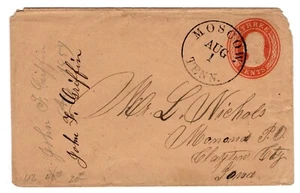 MOSCOW,
AUG
1
TENN.
THREE
CENTS
John F. Griffin
John F. Griffin
Mr. L. Nichols
Monona P.O.
Clayton City
Iowa